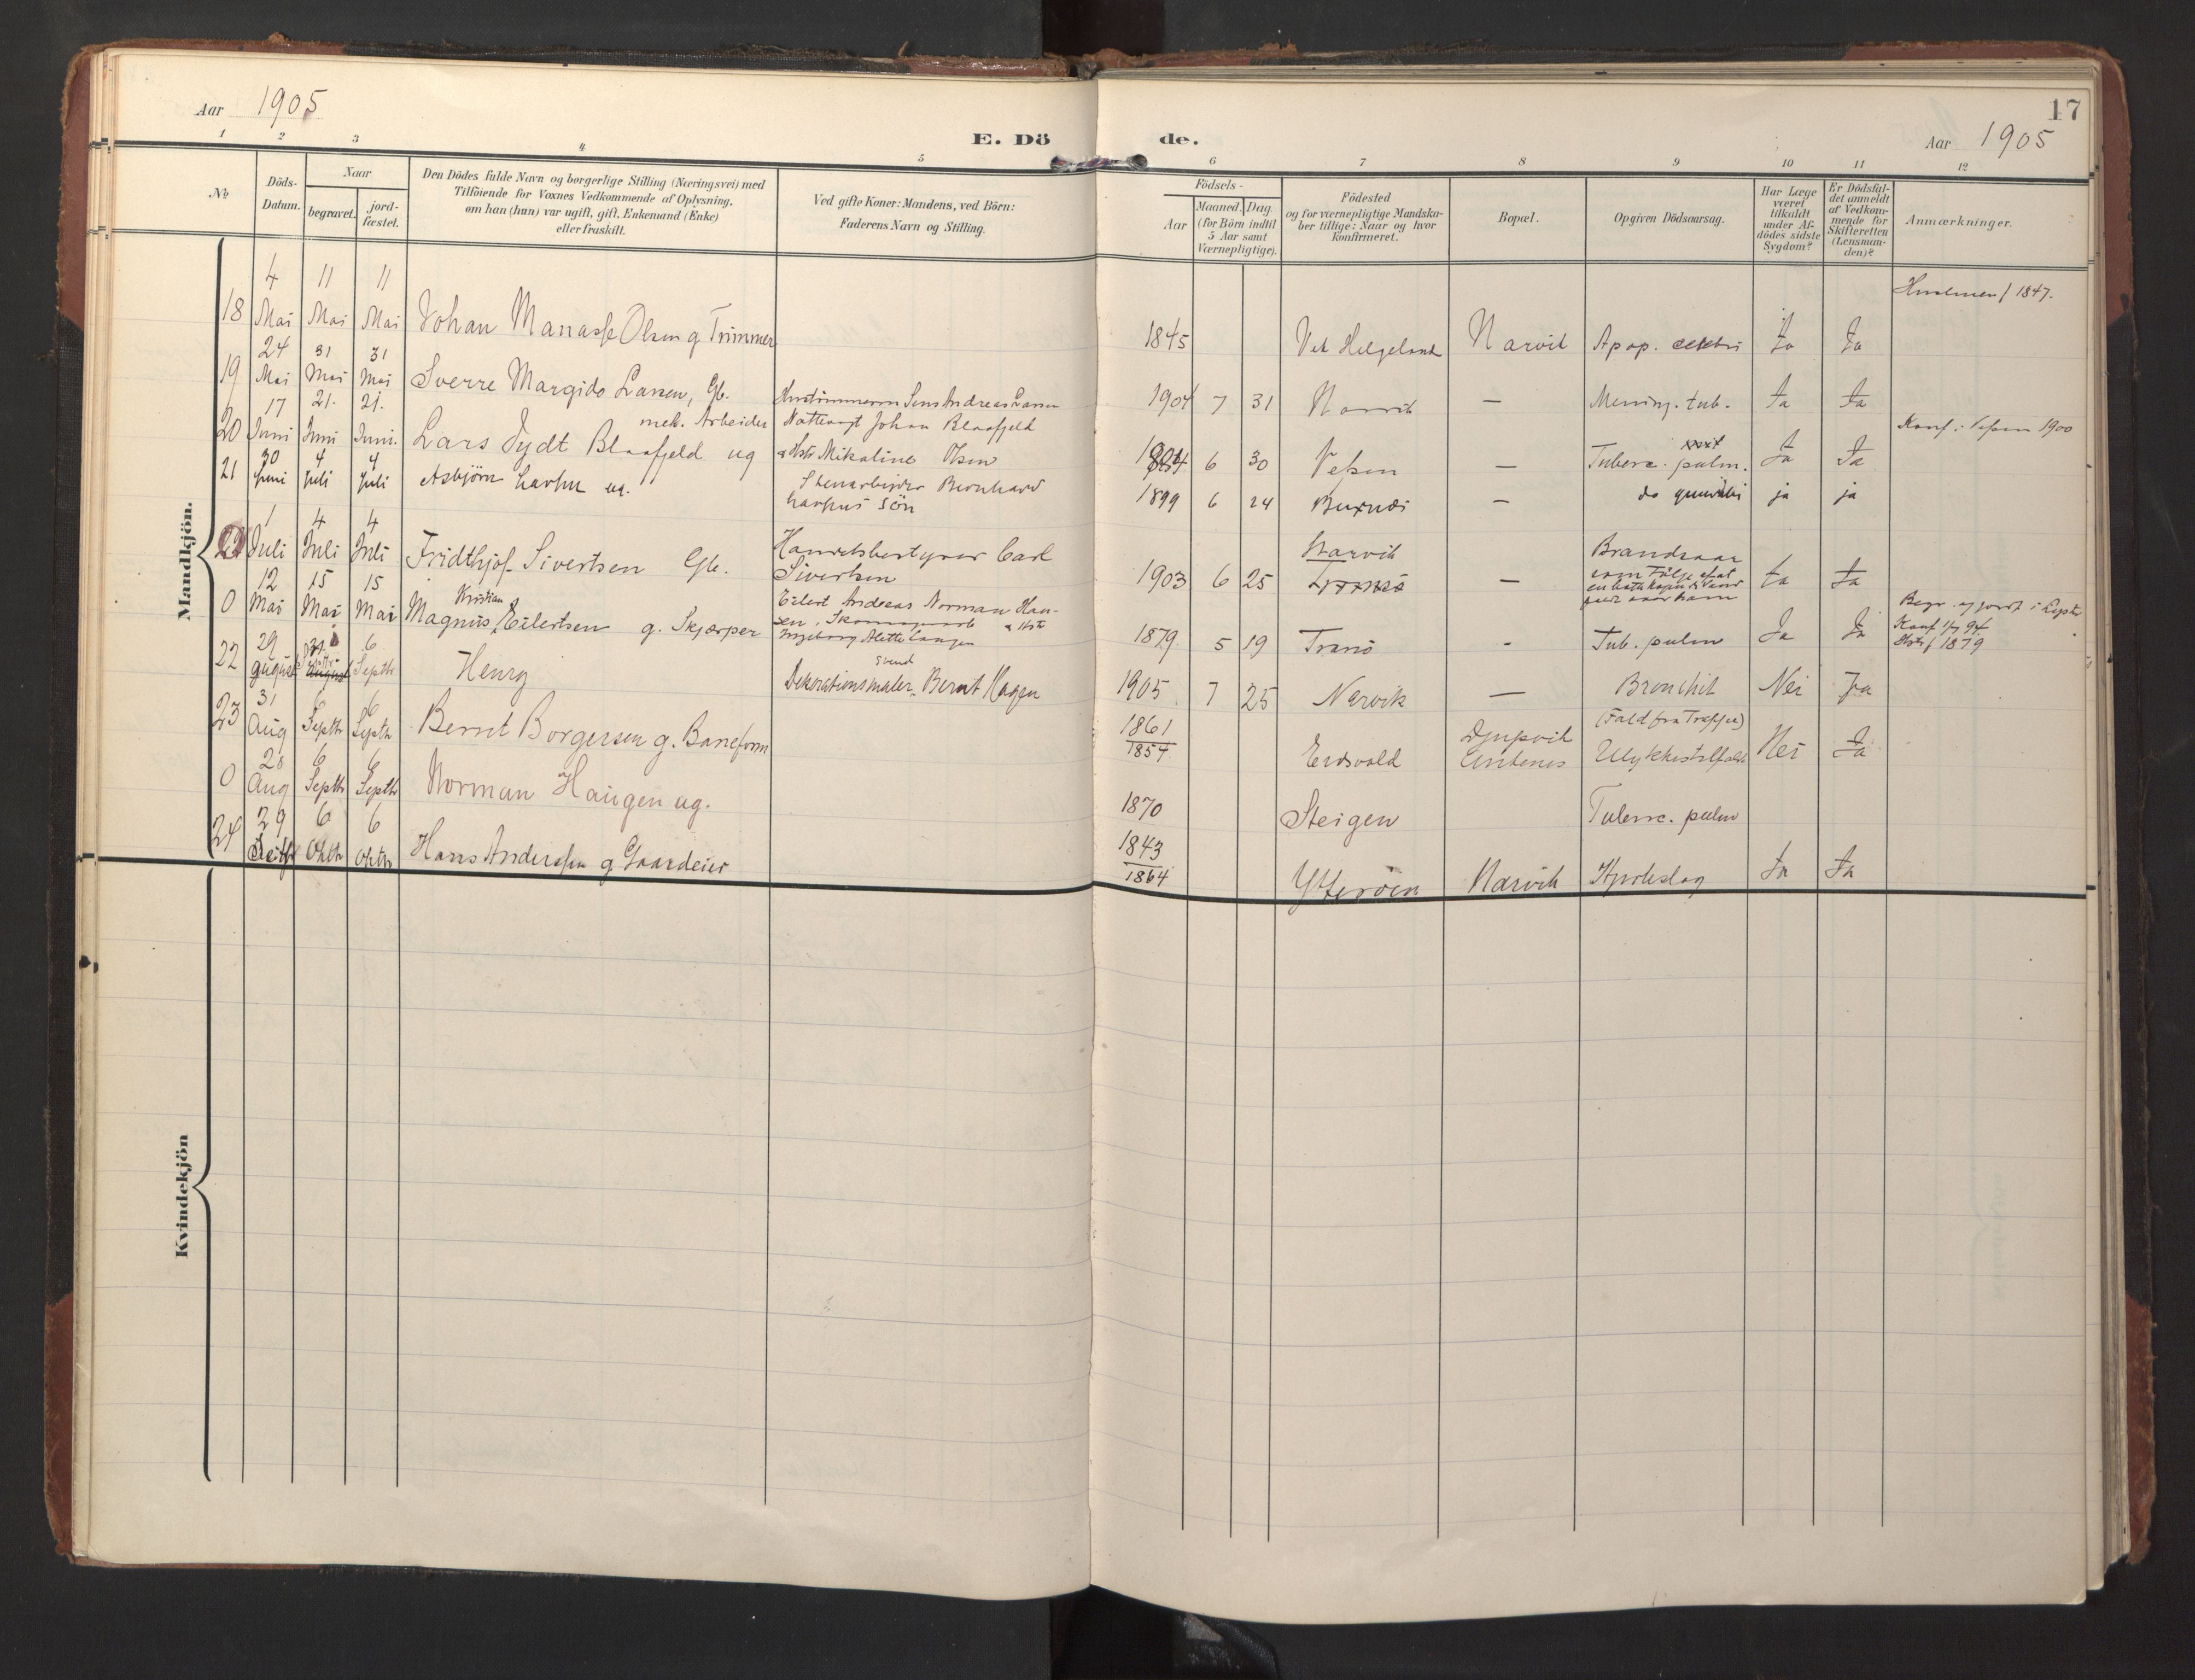 Aar 1905
E. Dö de.
17
Aar 1905
1 2 3 4 5 6 7 8 9 10 11 12
No
Döds-
Datum.
Naar
begravet.
jord-
fæstet.
Den Dödes fulde Navn og borgerlige Stilling (Næringsvei) med
Tilföiende for Voxnes Vedkommende af Oplysning,
om han (hun) var ugift, gift, Enkemand (Enke)
eller fraskilt.
Ved gifte Koner: Mandens, ved Börn:
Faderens Navn og Stilling.
Födsels-
Aar
Maaned. Dag.
(for Börn indtil
5 Aar samt
Værnepligtige).
Födested
og for værnepligtige Mandska-
ber tillige: Naar og hvor
konfirmeret.
Bopæl.
Opgiven Dödsaarsag.
Har Læge
været
tilkaldt
under Af-
dödes sidste
Sygdom?
Er Dödsfal-
det anmeldt
af Vedkom-
mende for
Skifteretten
(Lensman-
den)?
Anmærkninger.
Mandkjön.
4 11 11
18 Mai Mai Mai Johan Manasse Olsen g Trimmer 1845 Helgeland Narvik Apop. Ja Ja
1847.
24 31 31
19 Mai Mai Mai Sverre Margido Larsen, Gb. Andreas Larsen 1904 7 31 Narvik — Mening. tub. Ja Ja
17 21. 21.
mek. Arbeider
20 Juni Juni Juni. Lars Dydt Blaafjeld ug Johan Blaafjeld
Mikaline Olsen 6 30 Vefsen — Tuberc. pulm. Ja Ja Konf. i Vefsen 1900
30 4 4
21 Juni Juli Juli Asbjörn ug. Stenarbeider Bernhard
Sön 1899 6 24 — do ja ja
1 4 4
22 Juli Juli Juli Fridthjof Sivertsen Gb. Handelsbestyrer Carl
Sivertsen 1903 6 25 Narvik
Tromsö — Brandsaar
som Fölge af at
Ja Ja
12 15 15
0 Mai Mai Mai Magnus Kristian Eilertsen g. Skjærper Eilert Andreas Norman Han-
sen,
Ingeborg Alette 1879 5 19 Tranö - Tub. pulm Ja Ja Begr. og jordf. i
Konf 94
1879
29 6
22 August Septbr Henry Dekorationsmaler svend Bernt Hagen 1905 7 25 Narvik — Bronchit Nei Ja
31 6 6
23 Aug Septbr Septbr Bernt Borgersen g. Baneform 1861
1854 Eidsvold Djupvik
Ankenes (Fald fra Trappe)
Ulykkestilfælde Nei Ja
28 6 6
0 Aug Septbr Septbr Norman Haugen ug. 1870 Steigen Tuberc. pulm
29 6 6
24 Septbr Oktbr Oktbr Hans Anderssen g Gaardeier 1843
1864 Ytteröen Narvik Ja Ja
Kvindekjön